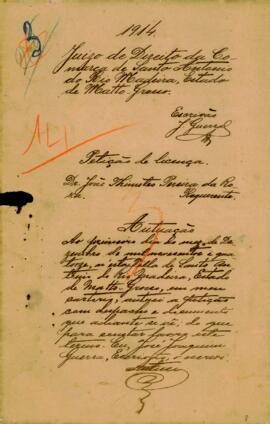 1914.
Juizo de Direito da Co-
marca de Santo Antonio
do Rio Madeira, Estado
de Matto-Grosso.
Escrivão
J Guerra
Petição de licença.
Dr. João Pereira da Ro-
Requerente
Autuação
Ao primeiro dia do mez de De-
zembro de mil novecentos e qua-
torze, n'esta Villa de Santo An-
tonio do Rio Madeira, Estado
de Matto-Grosso, em meu
cartorio, autuei a petição
com despacho e documento
que adiante se vê, do que
para constar lavro este
termo. Eu, José Joaquim
Guerra, Escrivão, o escrevi